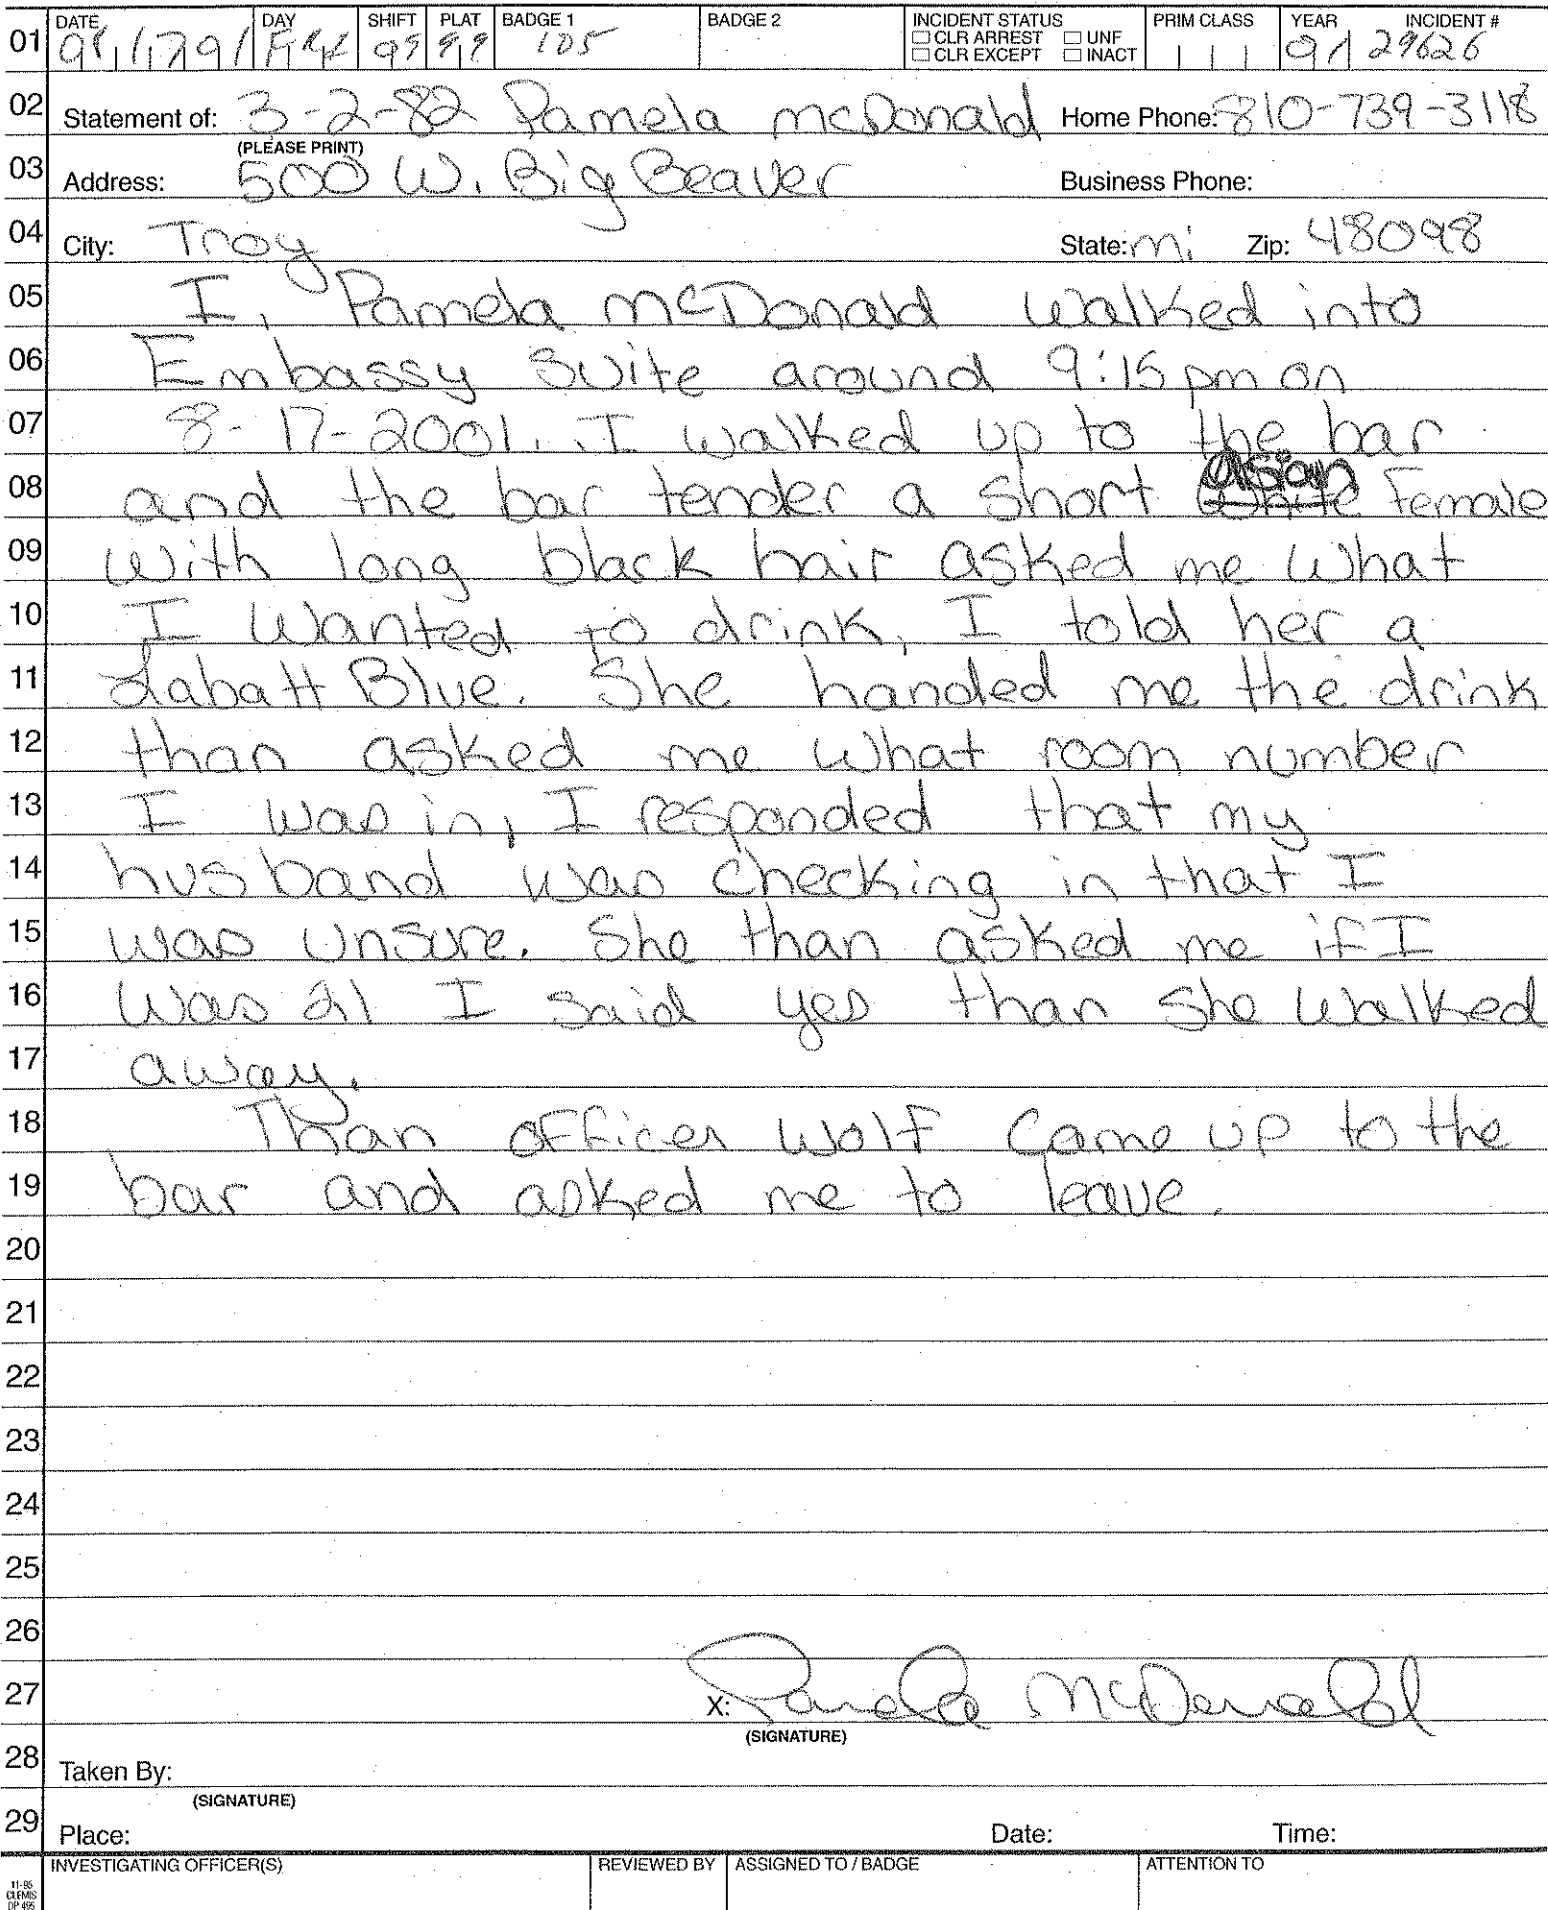 01 DATE DAY SHIFT PLAT BADGE 1 BADGE 2 INCIDENT STATUS PRIM CLASS YEAR INCIDENT #
☐ CLR ARREST ☐ UNF
☐ CLR EXCEPT ☐ INACT
99 99 105 29626
02 Statement of: 3-2-82 Pamela mcDonald Home Phone: 810-739-3118
(PLEASE PRINT)
03 Address: 500 W. Big Beaver Business Phone:
04 City: Troy State: mi Zip: 48098
05 I, Pamela mcDonald walked into
06 Embassy Suite around 9:15 pm on
07 8-17-2001. I walked up to the bar
08 and the bar tender a short asian white female
09 with long black hair asked me what
10 I wanted to drink, I told her a
11 Labatt Blue. She handed me the drink
12 than asked me what room number
13 I was in, I responded that my
14 husband was checking in that I
15 was unsure. She than asked me if I
16 was 21 I said yes than she walked
17 away.
18 Than officer Wolf came up to the
19 bar and asked me to leave.
20
21
22
23
24
25
26
27 X: Pamela McDonald
(SIGNATURE)
28 Taken By:
(SIGNATURE)
29 Place: Date: Time:
INVESTIGATING OFFICER(S) REVIEWED BY ASSIGNED TO / BADGE ATTENTION TO
11-95
CLEMIS
DP 495